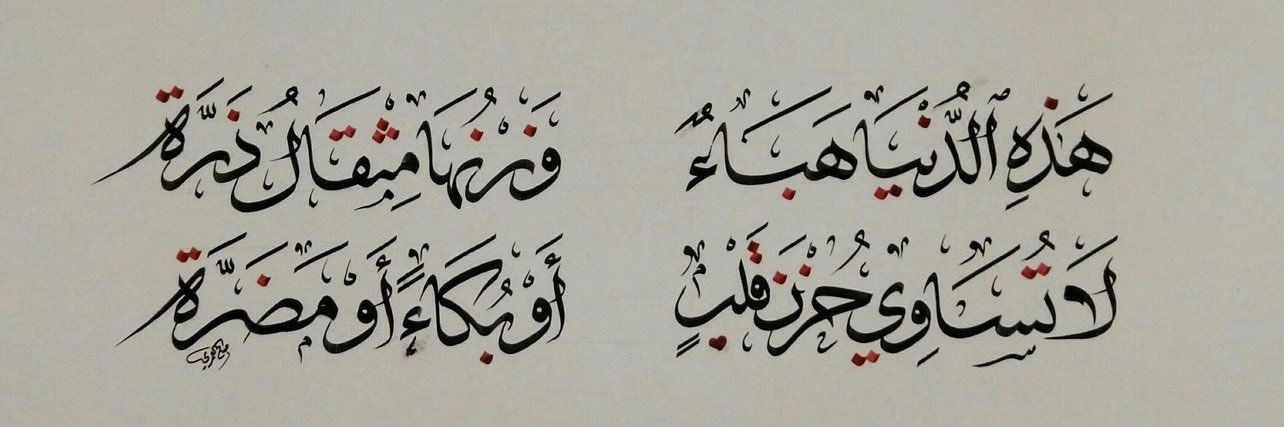 هَذِهِ ٱلدُّنْيَا هَبَاءٌ وَزْنُهَا مِثْقَالُ ذَرَّة
لَا تُسَاوِي حُزْنَ قَلْبٍ أَوْ بُكَاءً أَوْ مَضَرَّة